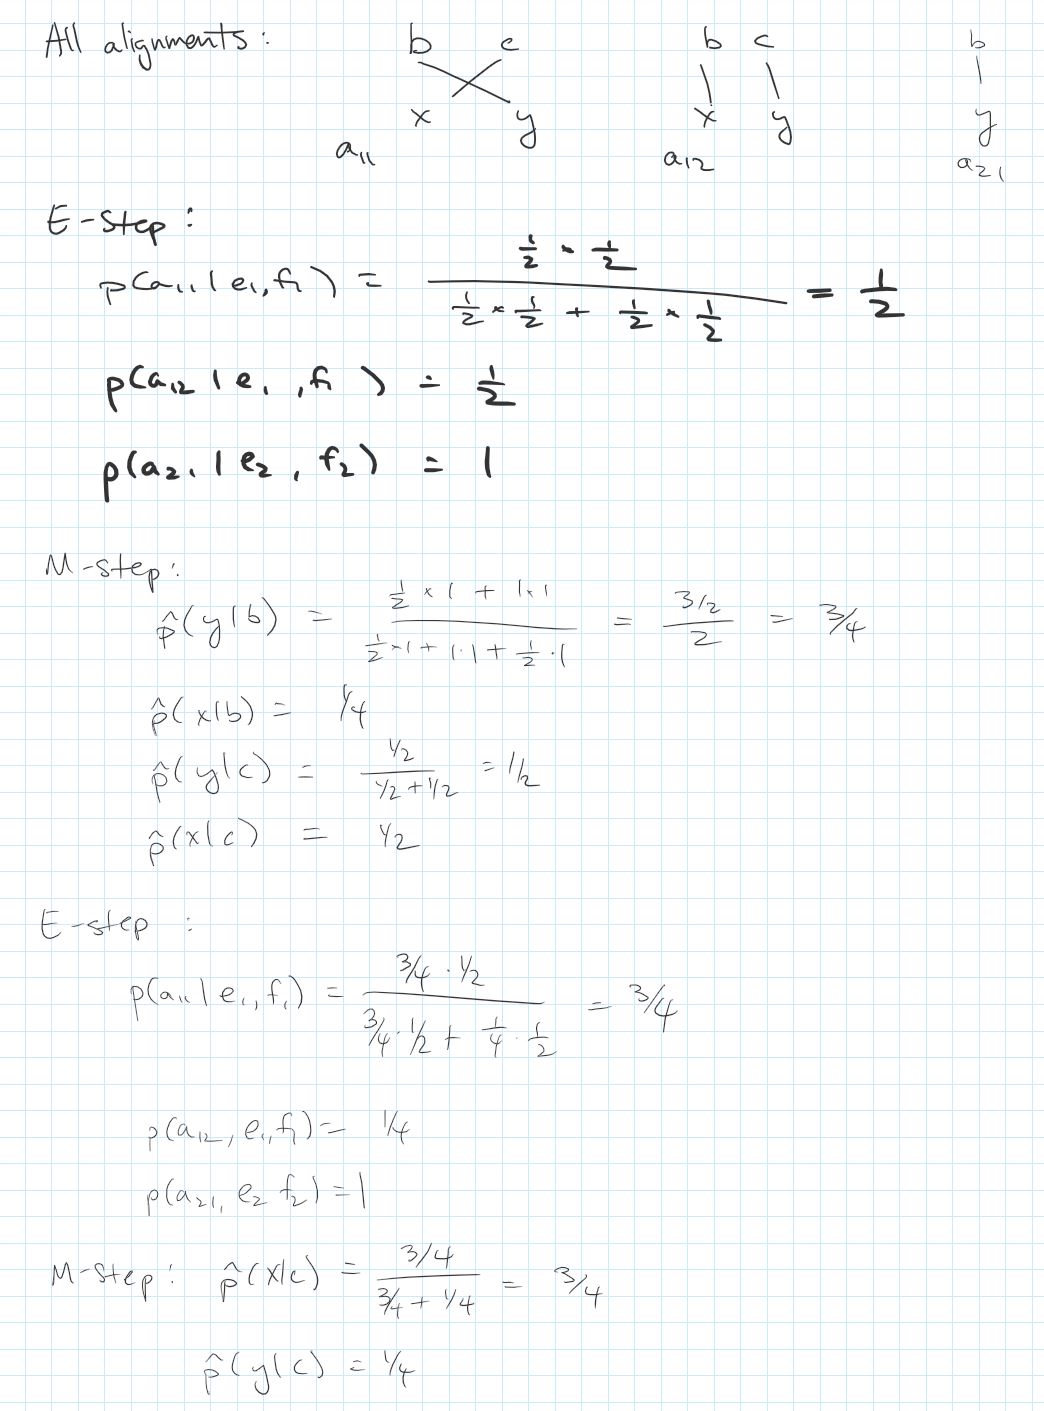 All alignments: b c b c b
x y x y y
a11 a12 a21
E-Step:
p(a11 | e1, f1) = (1/2 × 1/2) / (1/2 × 1/2 + 1/2 × 1/2) = 1/2
p(a12 | e1, f1) = 1/2
p(a21 | e2, f2) = 1
M-step:
p̂(y|b) = (1/2 × 1 + 1×1) / (1/2 × 1 + 1·1 + 1/2 · 1) = (3/2) / 2 = 3/4
p̂(x|b) = 1/4
p̂(y|c) = (1/2) / (1/2 + 1/2) = 1/2
p̂(x|c) = 1/2
E-step :
p(a11 | e1, f1) = (3/4 · 1/2) / (3/4 · 1/2 + 1/4 · 1/2) = 3/4
p(a12, e1, f1) = 1/4
p(a21, e2 f2) = 1
M-Step: p̂(x|c) = (3/4) / (3/4 + 1/4) = 3/4
p̂(y|c) = 1/4